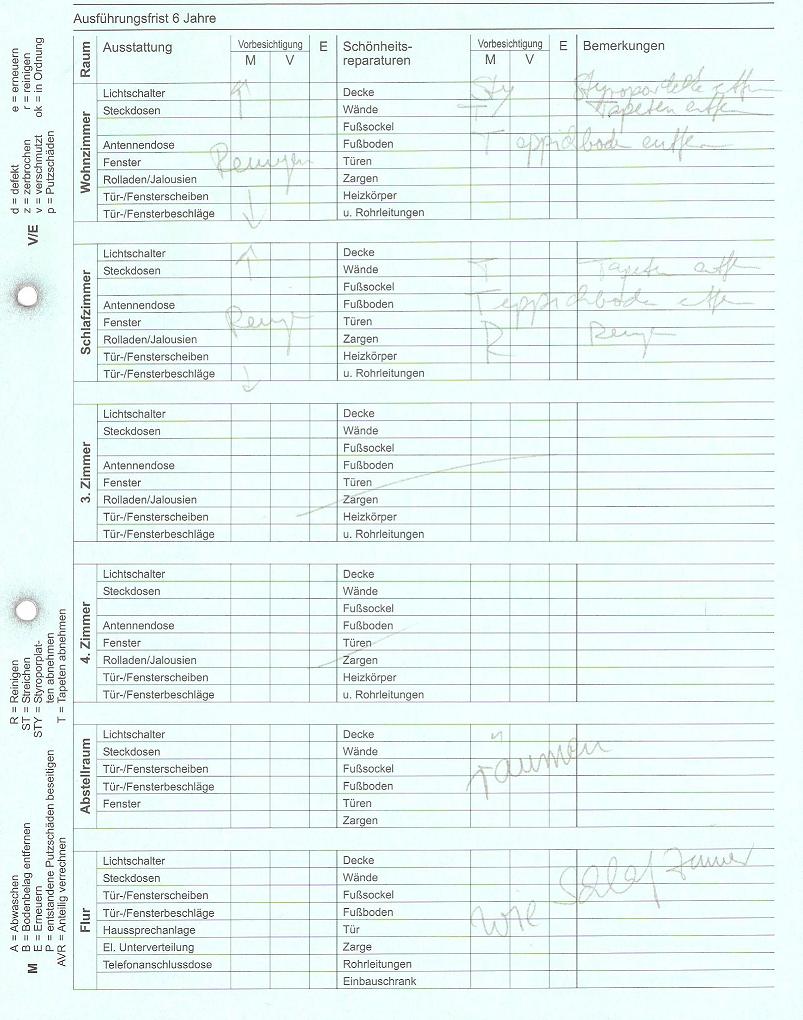 Ausführungsfrist 6 Jahre
Raum Ausstattung Vorbesichtigung M V E Schönheits-reparaturen Vorbesichtigung M V E Bemerkungen
Wohnzimmer
Lichtschalter Decke Sty
Steckdosen Wände T Tapeten
Fußsockel
Antennendose Fußboden Teppichboden
Fenster Reinigen Türen
Rolladen/Jalousien Zargen
Tür-/Fensterscheiben Heizkörper
Tür-/Fensterbeschläge u. Rohrleitungen
Schlafzimmer
Lichtschalter Decke
Steckdosen Wände T Tapeten
Fußsockel
Antennendose Fußboden Teppichboden
Fenster Türen
Rolladen/Jalousien Zargen R
Tür-/Fensterscheiben Heizkörper
Tür-/Fensterbeschläge u. Rohrleitungen
3. Zimmer
Lichtschalter Decke
Steckdosen Wände
Fußsockel
Antennendose Fußboden
Fenster Türen
Rolladen/Jalousien Zargen
Tür-/Fensterscheiben Heizkörper
Tür-/Fensterbeschläge u. Rohrleitungen
4. Zimmer
Lichtschalter Decke
Steckdosen Wände
Fußsockel
Antennendose Fußboden
Fenster Türen
Rolladen/Jalousien Zargen
Tür-/Fensterscheiben Heizkörper
Tür-/Fensterbeschläge u. Rohrleitungen
Abstellraum
Lichtschalter Decke
Steckdosen Wände räumen
Tür-/Fensterscheiben Fußsockel
Tür-/Fensterbeschläge Fußboden
Fenster Türen
Zargen
Flur
Lichtschalter Decke
Steckdosen Wände
Tür-/Fensterscheiben Fußsockel
Tür-/Fensterbeschläge Fußboden wie Schlafzimmer
Haussprechanlage Tür
El. Unterverteilung Zarge
Telefonanschlussdose Rohrleitungen
Einbauschrank
V/E
d = defekt e = erneuern
z = zerbrochen r = reinigen
v = verschmutzt ok = in Ordnung
p = Putzschäden
M
A = Abwaschen R = Reinigen
B = Bodenbelag entfernen ST = Streichen
E = Erneuern STY = Styroporplat-
ten abnehmen
P = entstandene Putzschäden beseitigen T = Tapeten abnehmen
AVR = Anteilig verrechnen